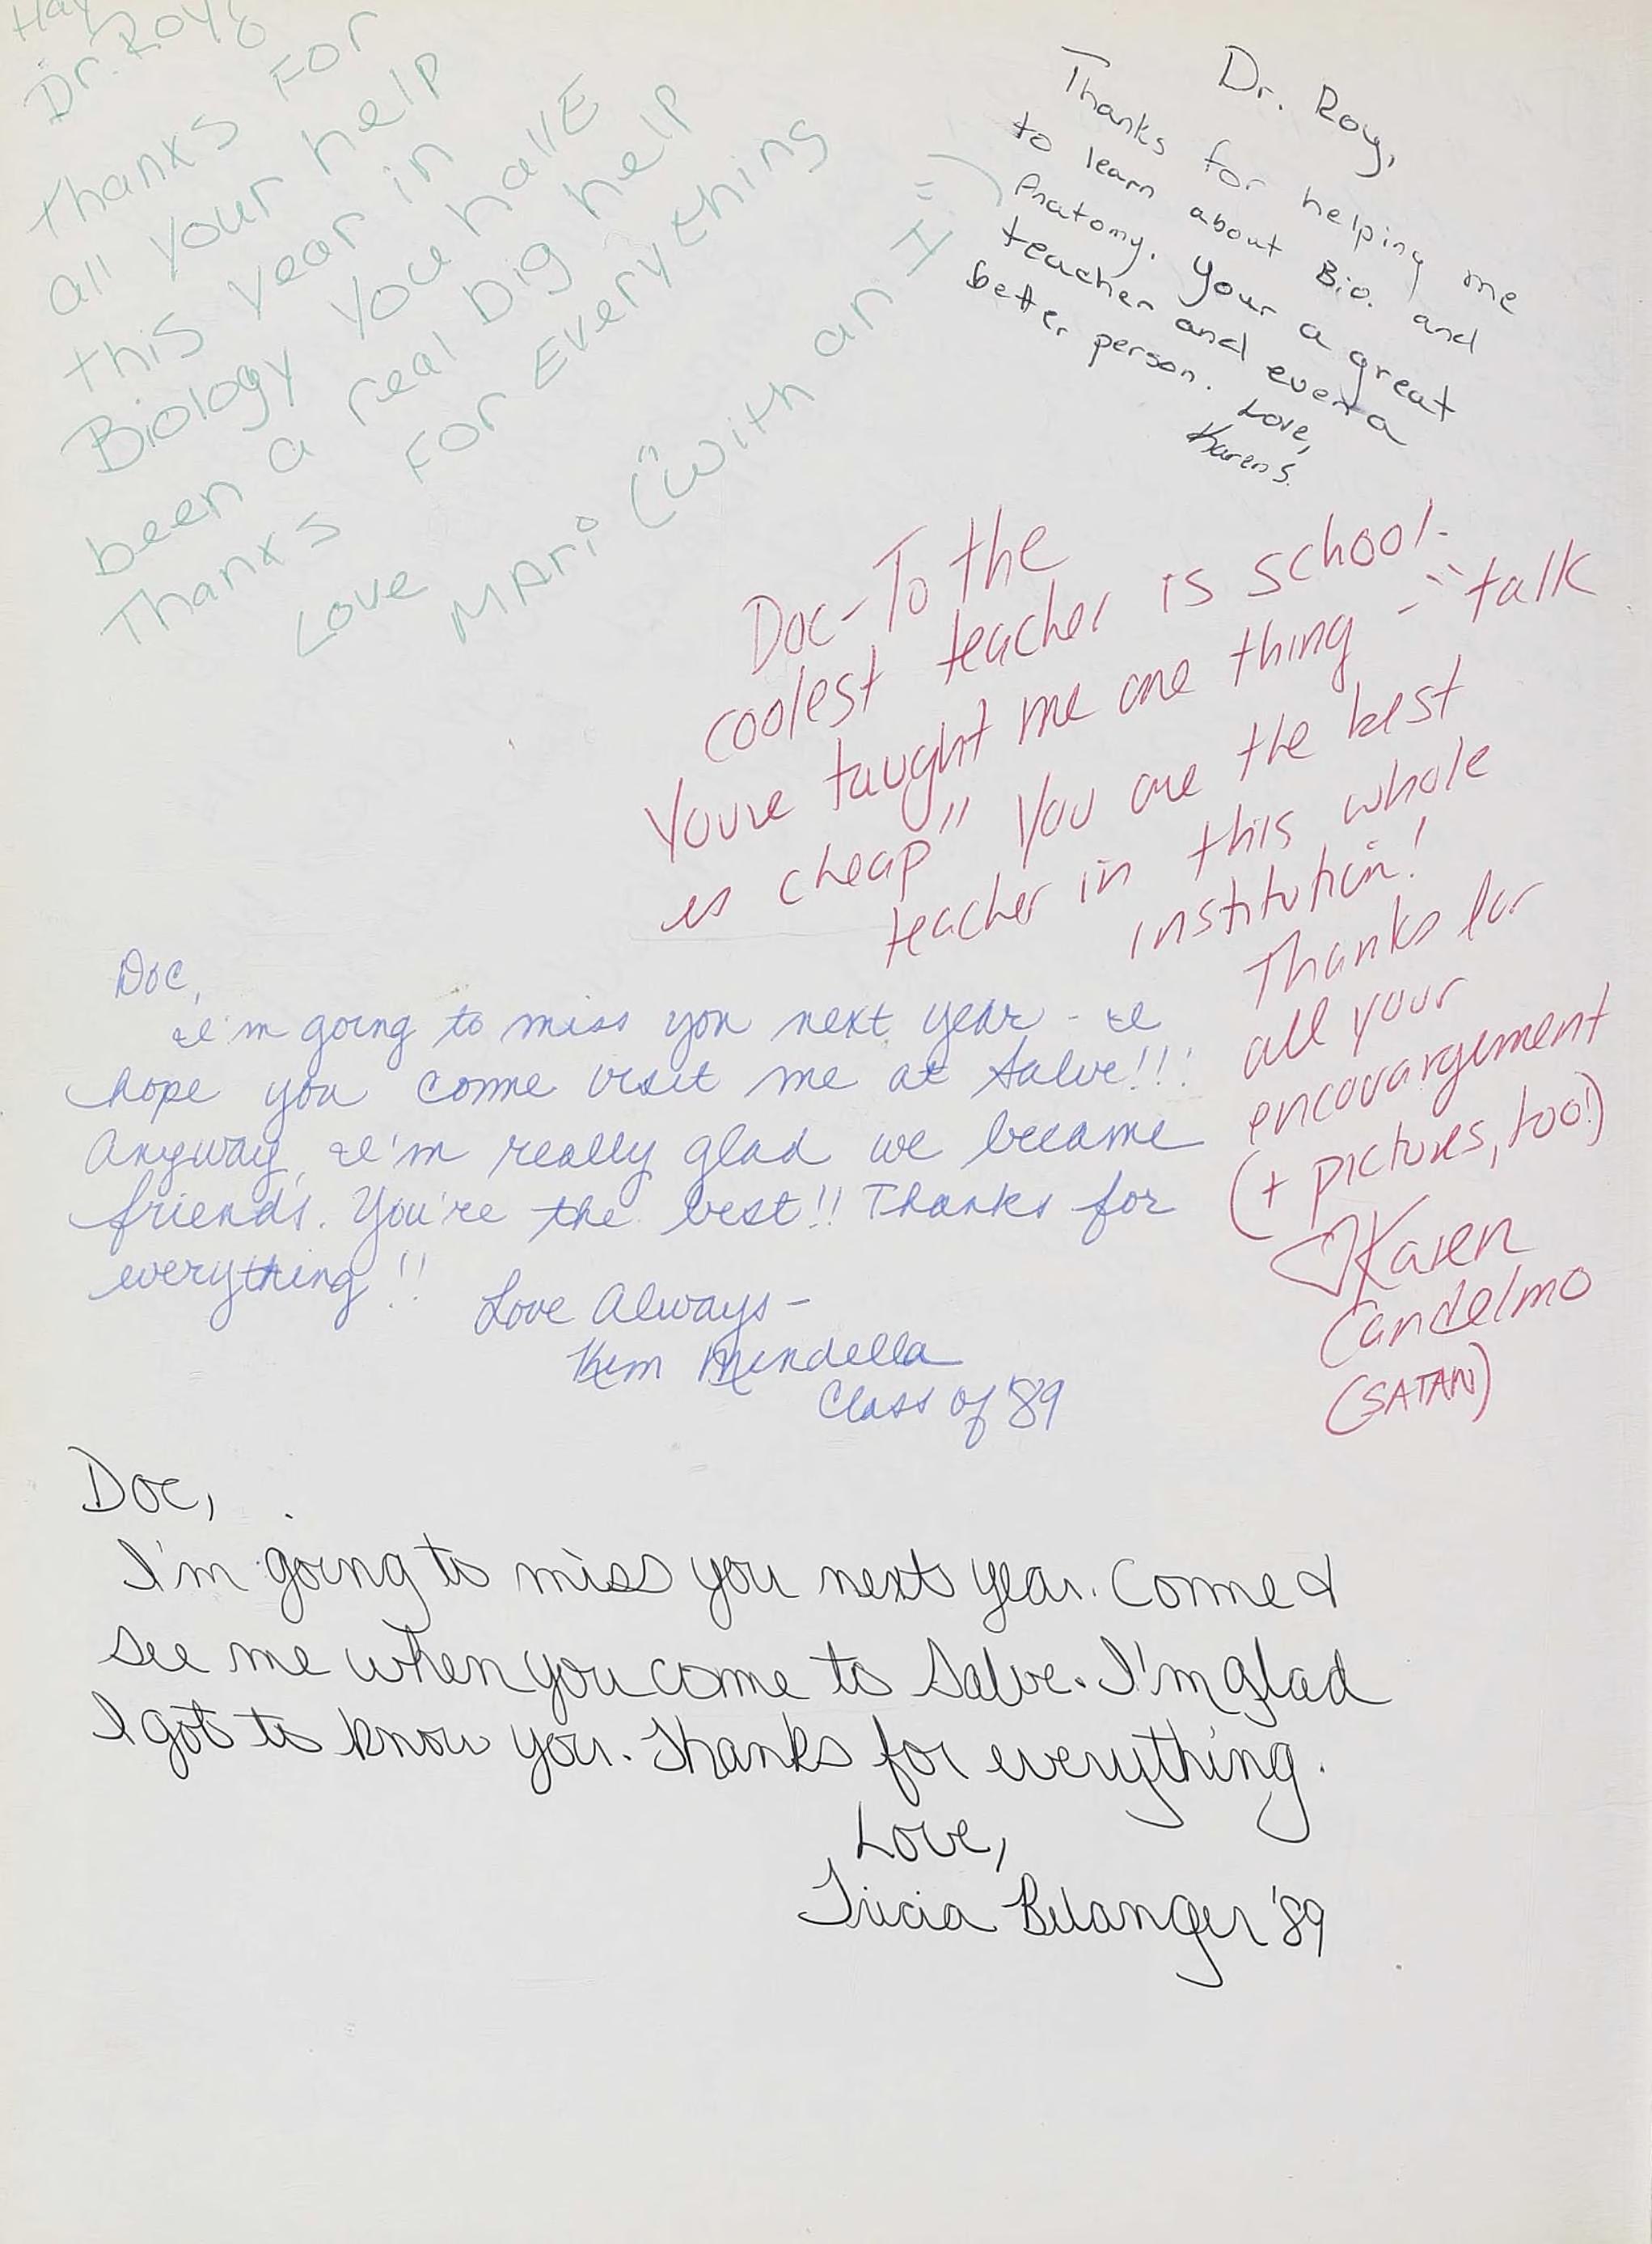 Hay
Dr. Roy
Thanks For
all your help
this year in
Biology You HavE
been a real Big help
Thanks For Everything
Love
MAri ("with an I" =)
Dr. Roy,
Thanks for helping me
to learn about Bio. and
Anatomy. Your a great
teacher and even a
better person.
Love,
Karen S.
Doc - To the
coolest teacher is school.
Youve taught me one thing - "talk
is cheap" You are the best
teacher in this whole
institution!
Thanks for
all your
encouragement
(+ pictures, too!)
♡ Karen
Candelmo
(SATAN)
Doc,
I'm going to miss you next year - I
hope you come visit me at Salve!!!
Anyway, I'm really glad we became
friends. You're the best!! Thanks for
everything!!
Love Always -
Kim Mindella
Class of '89
Doc,
I'm going to miss you next year. Come &
see me when you come to Salve. I'm glad
I got to know you. Thanks for everything.
Love,
Tricia Belanger '89